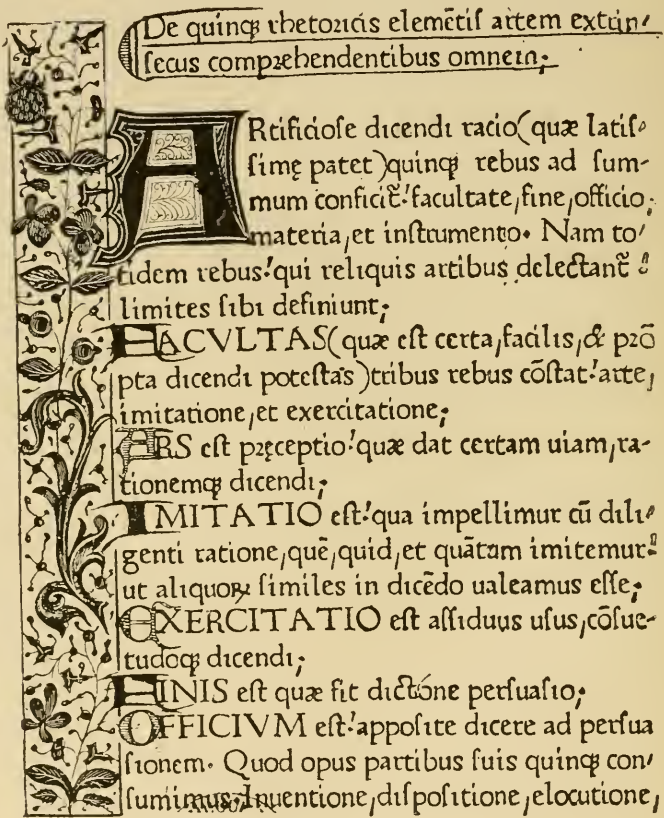 De quinqꝫ rhetoricis elemētiſ artem extrin/
ſecus comprehendentibus omnem;
ARtificioſe dicendi racio(quæ latiſ/
ſimę patet)quinqꝫ rebus ad ſum-
mum conficit̃:facultate,fine,officio,
materia,et inſtrumento. Nam to/
tidem rebus:qui reliquis artibus delectant̃
limites ſibi definiunt;
FACVLTAS(quæ eſt certa,facilis,& prō
pta dicendi poteſtas)tribus rebus cōſtat:arte,
imitatione,et exercitatione;
ARS eſt pręceptio:quæ dat certam uiam,ra-
tionemqꝫ dicendi;
IMITATIO eſt:qua impellimur cū dili/
genti ratione,quē,quid,et quātum imitemur:
ut aliquoꝝ ſimiles in dicēdo ualeamus eſſe;
EXERCITATIO eſt aſſiduus uſus,cōſue-
tudoqꝫ dicendi;
FINIS eſt quæ fit dictóne perſuaſio;
OFFICIVM eſt:appoſite dicere ad perſua
ſionem. Quod opus partibus ſuis quinqꝫ con/
ſumimus:Inuentione,diſpoſitione,elocutione,